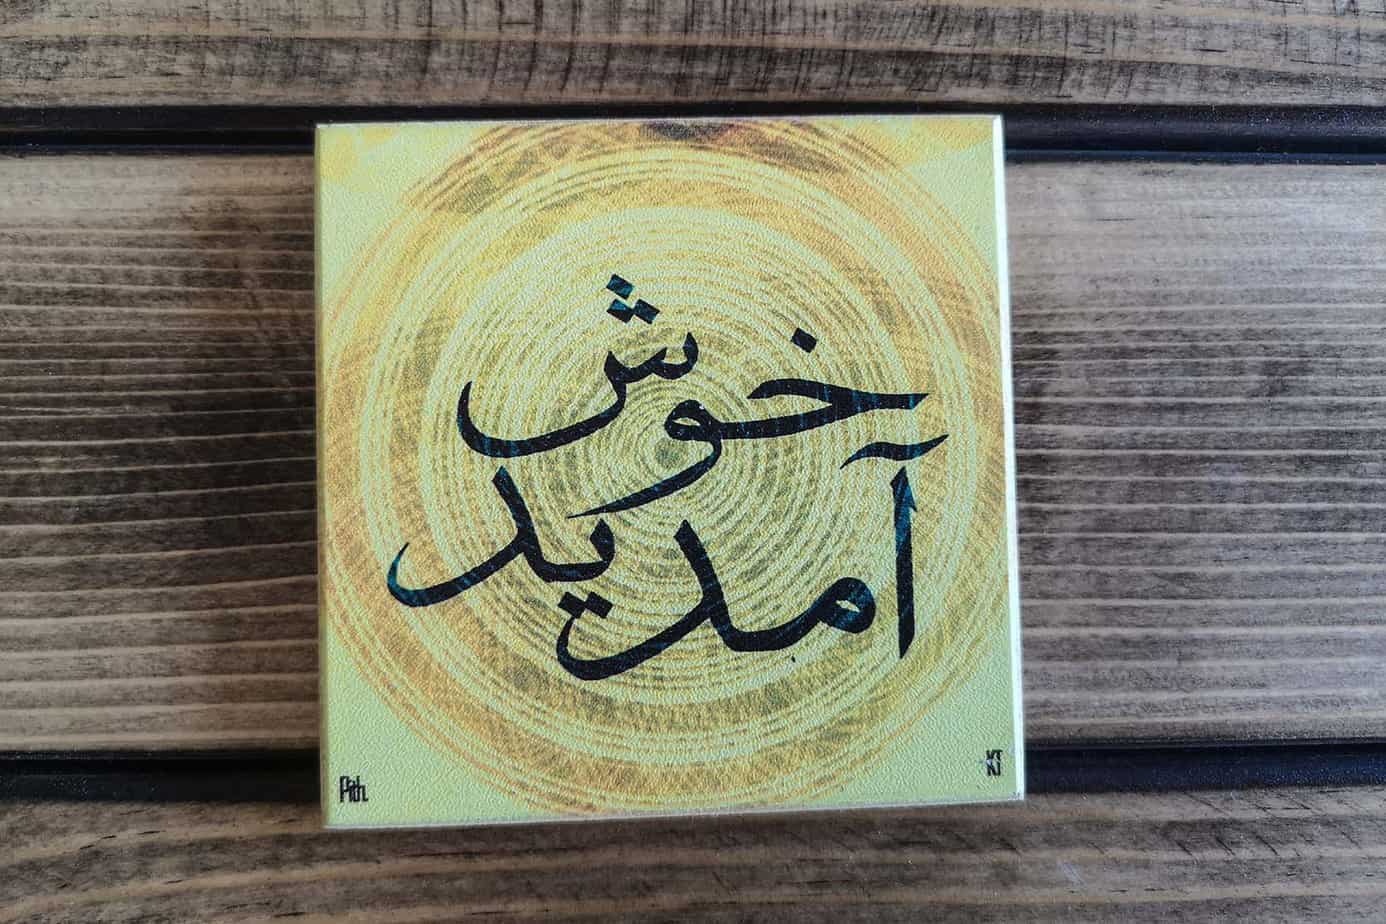 خوش
آمدید
Pith
KT